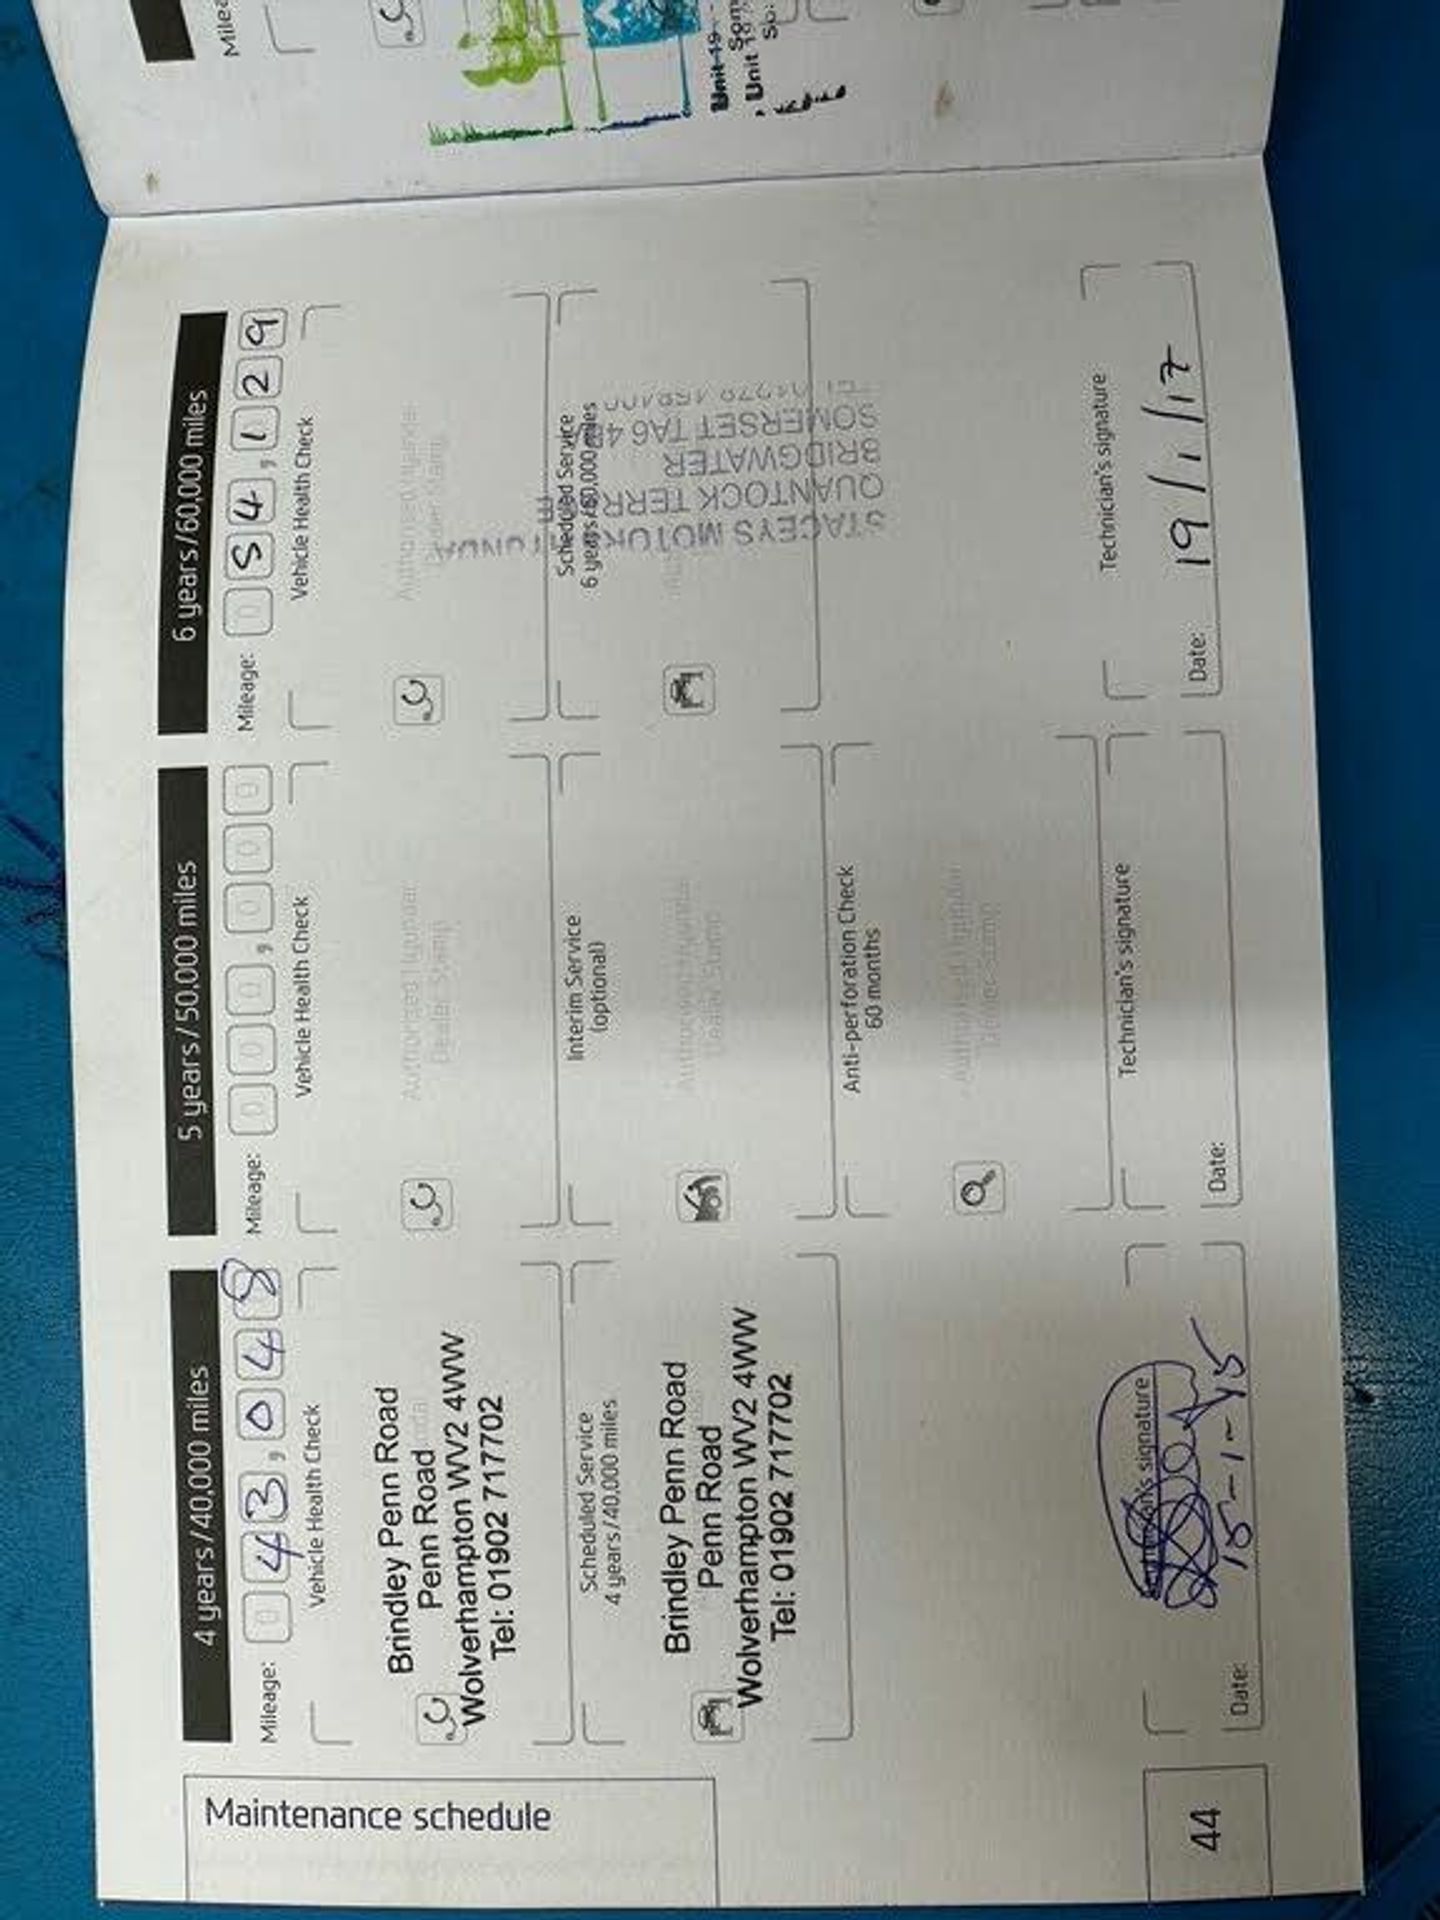 Maintenance schedule
4 years/40,000 miles
Mileage: 0 4 3 , 0 4 8
Vehicle Health Check
Brindley Penn Road
Penn Road
Wolverhampton WV2 4WW
Tel: 01902 717702
Scheduled Service
4 years/40,000 miles
Brindley Penn Road
Penn Road
Wolverhampton WV2 4WW
Tel: 01902 717702
signature
Date: 15-1-15
44
5 years/50,000 miles
Mileage: 0 0 0 , 0 0 0
Vehicle Health Check
Authorized Hyundai
Dealer Stamp
Interim Service
(optional)
Authorized Hyundai
Dealer Stamp
Anti-perforation Check
60 months
Authorized Hyundai
Dealer Stamp
Technician's signature
Date:
6 years/60,000 miles
Mileage: 0 5 4 , 1 2 9
Vehicle Health Check
Authorized Hyundai
Dealer Stamp
Scheduled Service
6 years/60,000 miles
STACEYS MOTOR
QUANTOCK TERR
BRIDGWATER
SOMERSET TA6
Technician's signature
Date: 19/1/17
Unit